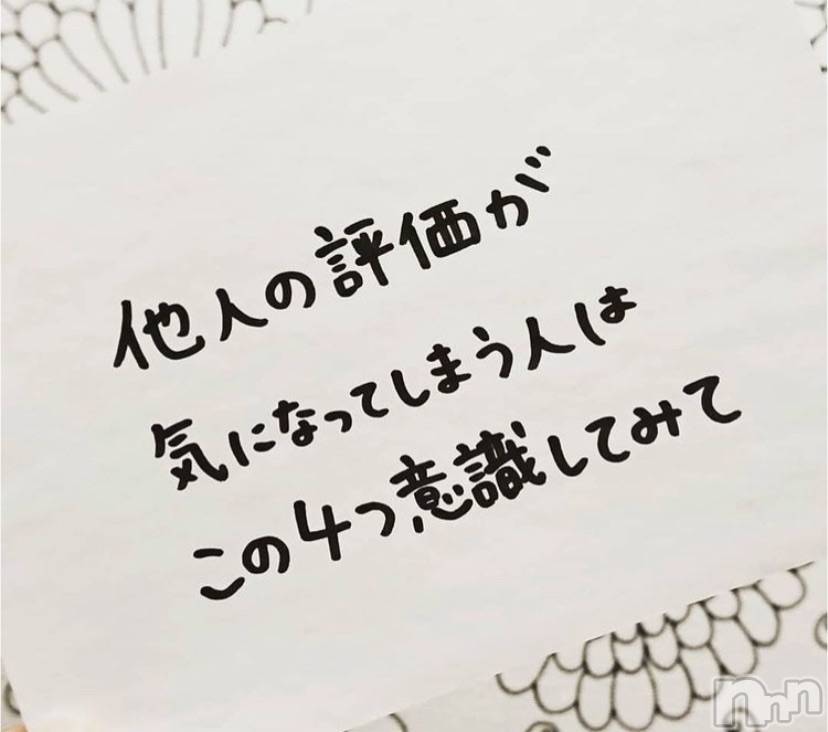 他人の評価が
気になってしまう人は
この4つ意識してみて
nnn